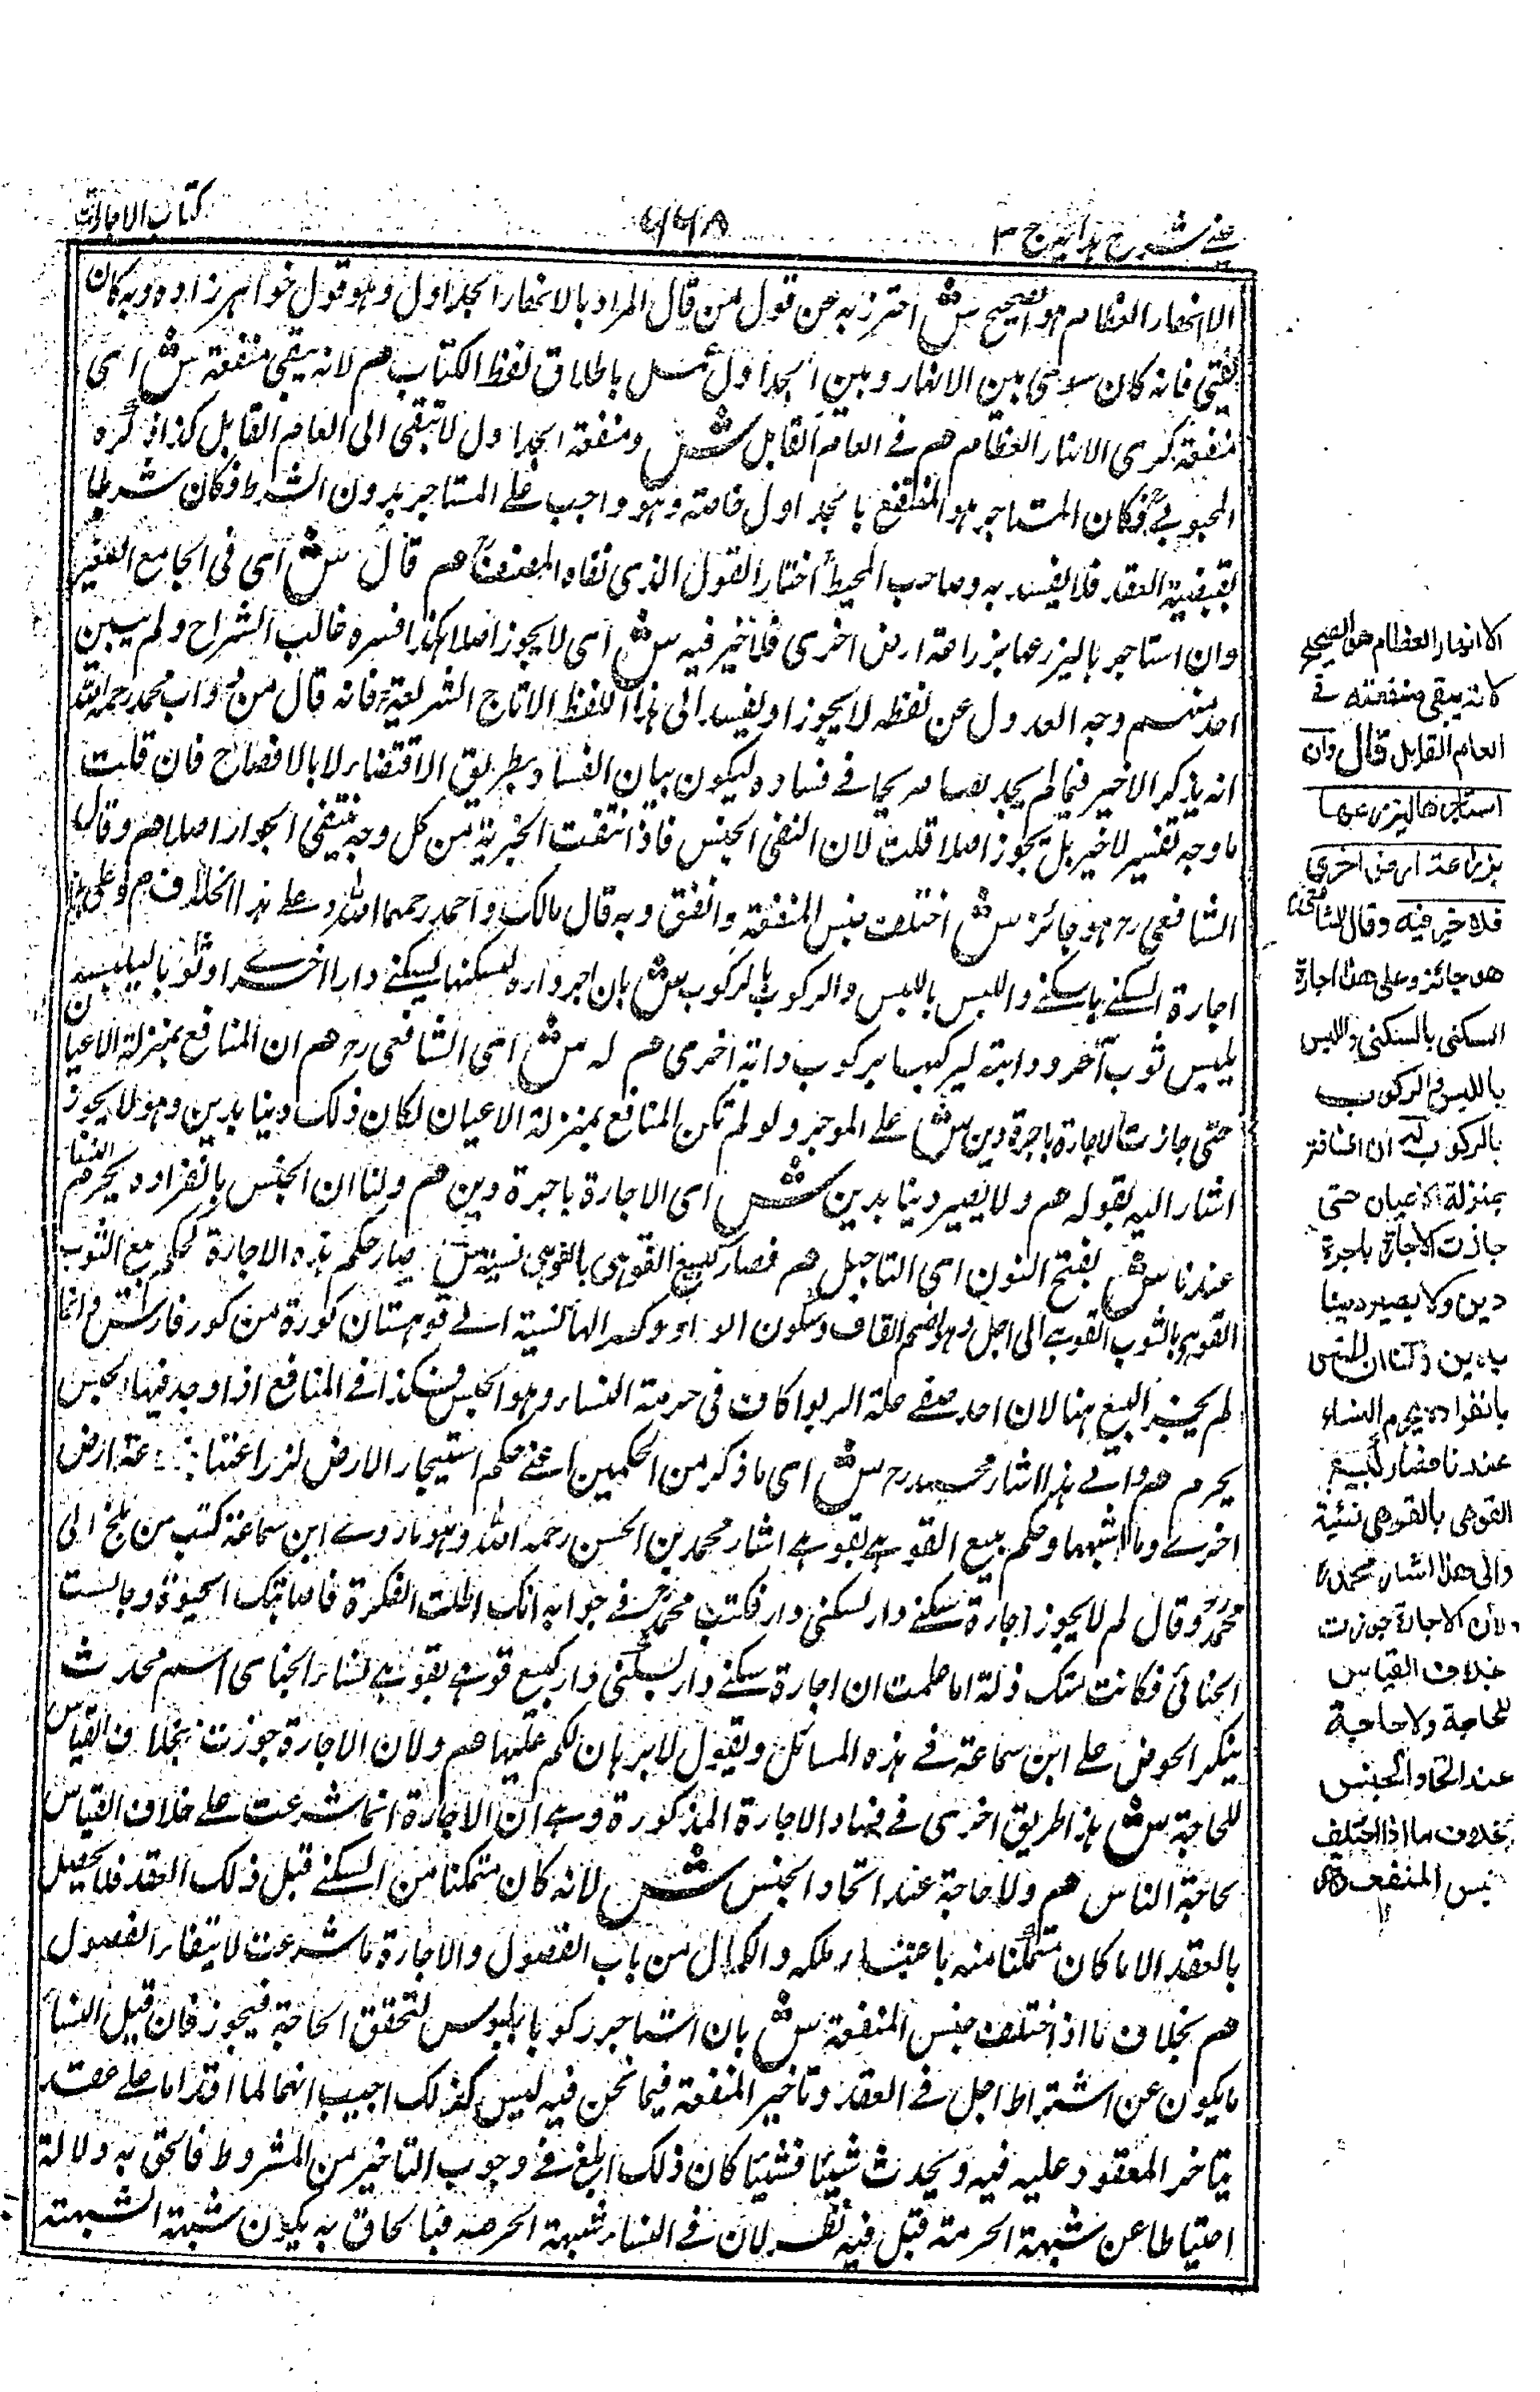 عینی شرح ہدایہ ج ۳
۶۶۸
کتاب الاجارات
الانهار العظام هو الصحیح ش احترز به عن قول من قال المراد بالانهار الجداول وهو قول خواهر زاده وبه کان
یفتی فانه کان سوی بین الانهار وبین الجداول باطلاق لفظ الکتاب هم لانه یبقی منفعة ش ای
منفعة کری الانهار العظام هم فی العام القابل ش ومنفعة الجداول لا تبقی الی العام القابل کذا ذکره
المحبوبی فکان المستاجر هو المنتفع بالجداول خاصة وهو واجب علی المستاجر بدون الشرط فکان شرطا
یقتضیه العقد فلا یفسد به وصاحب المحیط اختار القول الذی نفاه المصنف هم قال ش ای فی الجامع الصغیر
وان استاجرها لیزرعها بزراعة ارض اخری فلا خیر فیه ش ای لا یجوز اصلا هکذا فسره غالب الشراح ولم یبین
احد منهم وجه العدول عن لفظه لا یجوز او یفسد الی هذا اللفظ الا تاج الشریعة فانه قال من داب محمد رحمه الله
انه یذکر الاخیر فیما لم یجد نصا صریحا فی فساده لیکون بیان الفساد بطریق الاقتضاء لا بالافصاح فان قلت
ما وجه تفسیر لا خیر بل یجوز اصلا قلت لان النفی الجنس فاذا انتفت الخیریة من کل وجه ینتفی الجواز اصلا هم وقال
الشافعی رح هو جائز ش اختلف جنس المنفعة واتفق وبه قال مالک واحمد رحمهما الله وعلی هذا الخلاف م وعلی هذا
اجارة السکنی بالسکنی واللبس باللبس والرکوب بالرکوب ش بان اجر داره لیسکنها بسکنی دار اخری او ثوبا لیلبسه
بلبس ثوب آخر ودابة لیرکبها برکوب دابة اخری هم له ش ای الشافعی رح هم ان المنافع بمنزلة الاعیان
حتی جازت الاجارة باجرة دین ش علی الموجر ولو لم تکن المنافع بمنزلة الاعیان لکان ذلک دینا بدین وهو لا یجوز
اشار الیه بقوله هم ولا یصیر دینا بدین ش ای الاجارة باجرة دین هم ولنا ان الجنس بانفراده یحرم النساء
عندنا ش بفتح النون ای التاجیل هم فصار کبیع القوهی بالقوهی نسیئة ش صار حکم هذه الاجارة کحکم بیع الثوب
القوهی بالثوب القوهی الی اجل وهو بضم القاف وسکون الواو وکسر الهاء نسبة الی قوهستان کورة من کور فارس وانما
لم یجز البیع هنا لان احد وصفی علة الربوا کاف فی حرمة النساء وهو الجنس فکذا فی المنافع اذا وجد فیها الجنس
یحرم هم والی هذا اشار محمد رح ش ای ما ذکر من الحکمین اعنی حکم استیجار الارض لزراعتها بزراعة ارض
اخری وما اشبهها وحکم بیع القوهی بقوهی اشار محمد بن الحسن رحمه الله وهو ما روی ابن سماعة کتب من بلخ الی
محمد رح وقال لم لا یجوز اجارة سکنی دار بسکنی دار فکتب محمد رح فی جوابه انک اطلت الفکرة فاصابتک الحیرة وجالست
الحنائی فکانت منک زلة اما علمت ان اجارة سکنی دار بسکنی دار کبیع قوهی بقوهی نساء الحنائی اسم محدث
ینکر الخوض علی ابن سماعة فی هذه المسائل ویقول لا برهان لکم علیها هم ولان الاجارة جوزت بخلاف القیاس
للحاجة ش هذا طریق اخری فی فساد الاجارة المذکورة وهی ان الاجارة انما شرعت علی خلاف القیاس
لحاجة الناس هم ولا حاجة عند اتحاد الجنس ش لانه کان متمکنا من السکنی قبل ذلک العقد فلا یحصل
بالعقد الا ما کان متمکنا منه باعتبار ملکه والکمال من باب الفضول والاجارة ما شرعت لابتغاء الفضول
هم بخلاف ما اذا اختلف جنس المنفعة ش بان استاجر رکوبا بلبوس لتحقق الحاجة فیجوز فان قیل النساء
ما یکون عن اشتراط اجل فی العقد وتاخیر المنفعة فیما نحن فیه لیس کذلک اجیب انهما لما اقدما علی عقد
یتاخر المعقود علیه فیه ویحدث شیئا فشیئا کان ذلک ابلغ فی وجوب التاخیر من المشروط فالحق به دلالة
احتیاطا عن شبهة الحرمة قیل فیه نظر لان فی النساء شبهة الحرمة فبالحاق به یکون شبهة الشبهة
الانهار العظام هو الصحیح
لانه یبقی منفعته فی
العام القابل قال وان
استاجرها لیزرعها
بزراعة ارض اخری
فلا خیر فیه وقال الشافعی
هو جائز وعلی هذا اجارة
السکنی بالسکنی واللبس
باللبس والرکوب
بالرکوب له ان المنافع
بمنزلة الاعیان حتی
جازت الاجارة باجرة
دین ولا یصیر دینا
بدین ولنا ان الجنس
بانفراده یحرم النساء
عندنا فصار کبیع
القوهی بالقوهی نسیئة
والی هذا اشار محمد رح
ولان الاجارة جوزت
بخلاف القیاس
للحاجة ولا حاجة
عند اتحاد الجنس
بخلاف ما اذا اختلف
جنس المنفعة